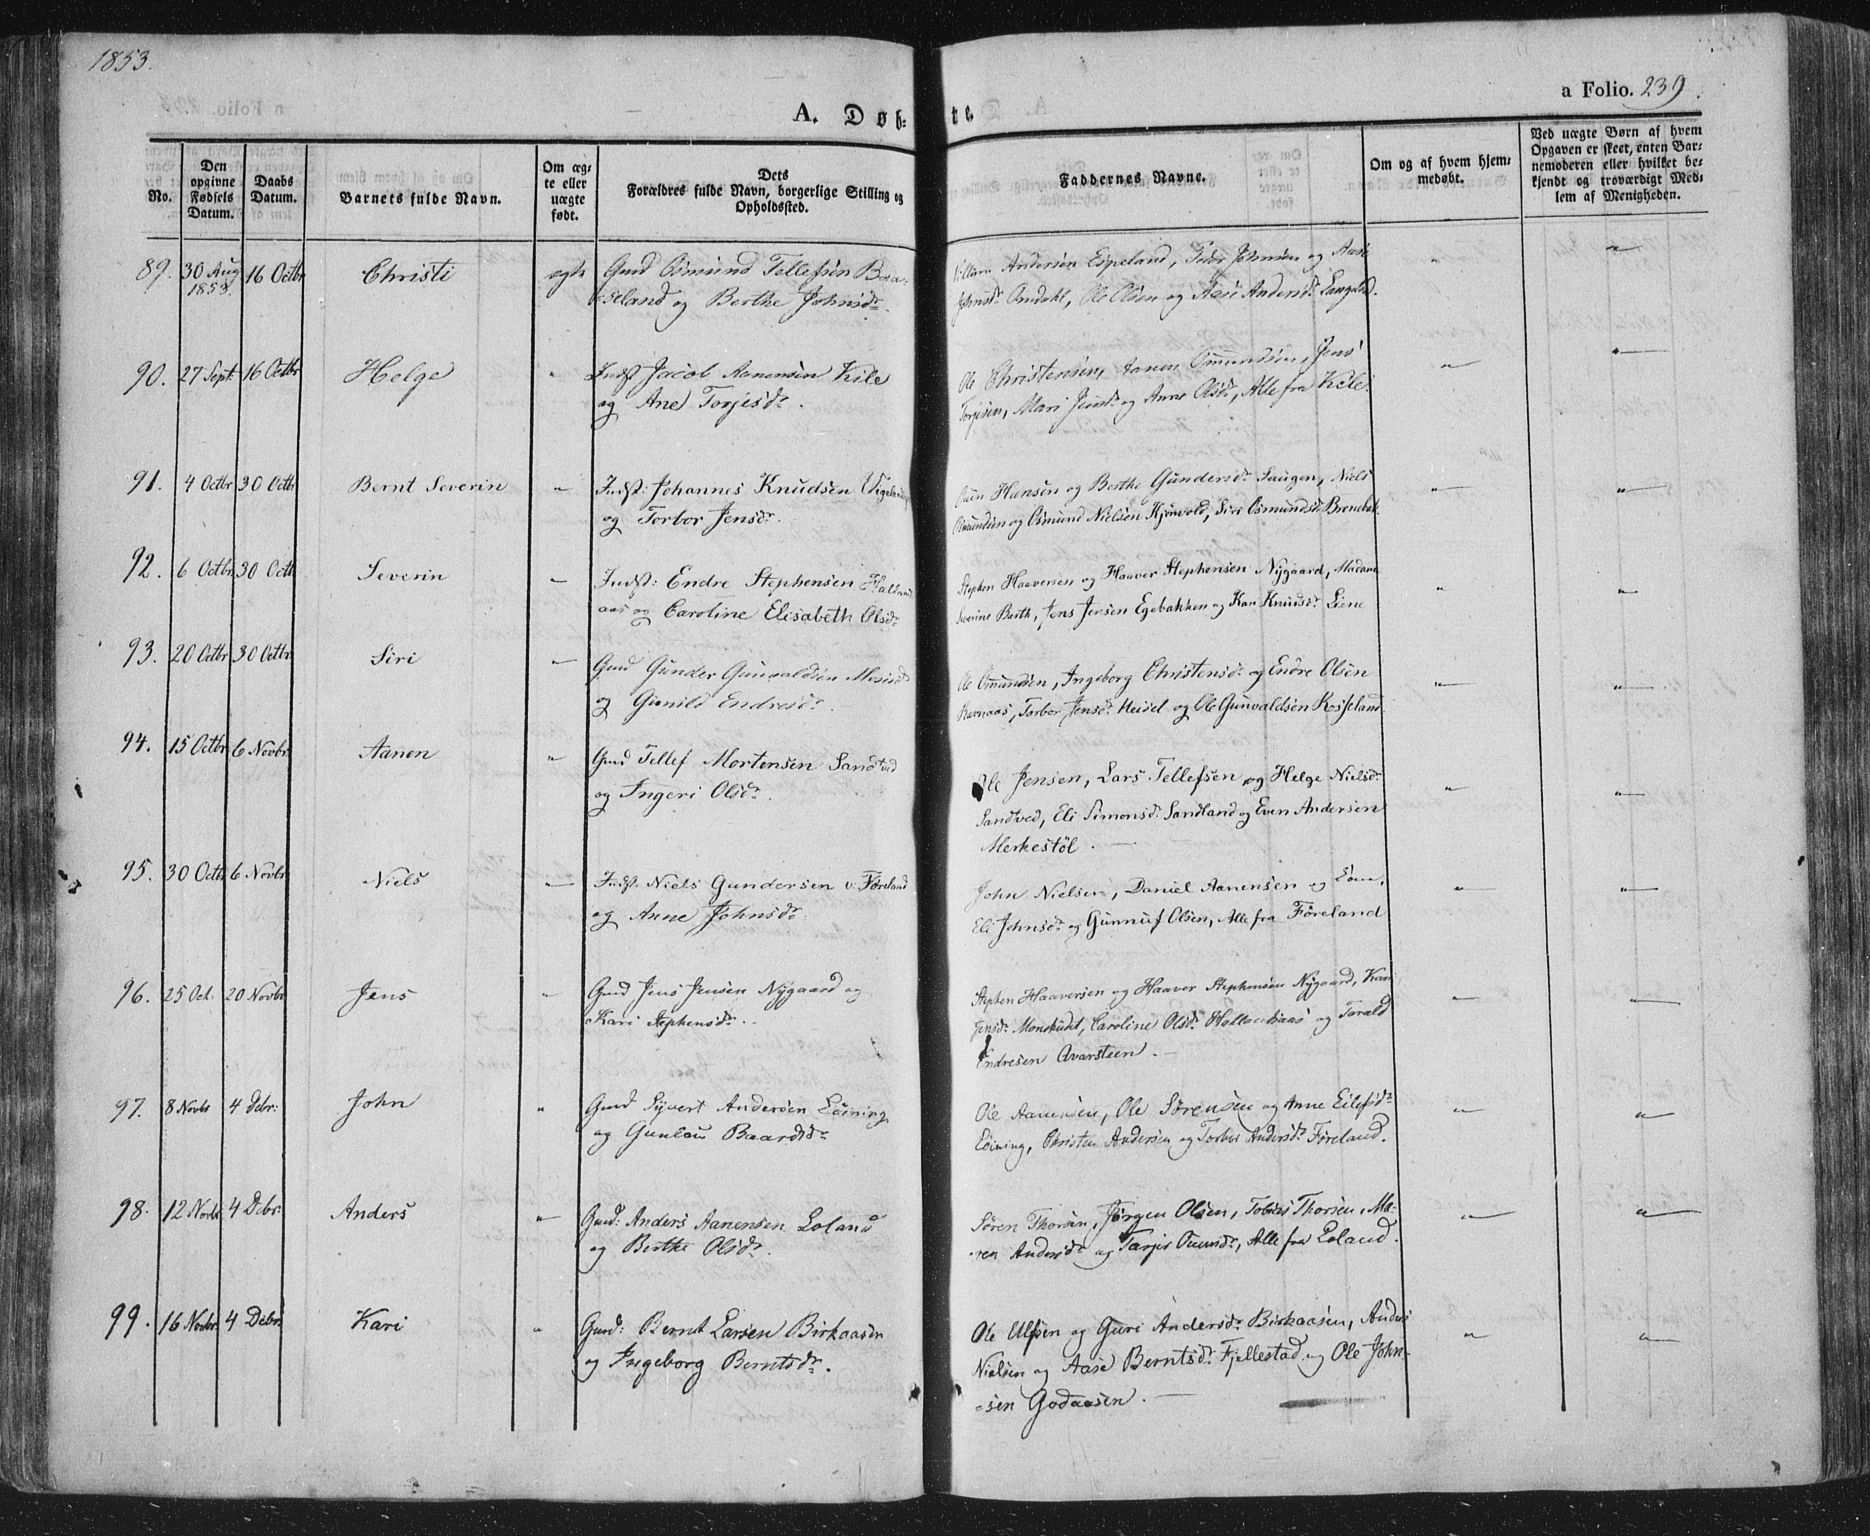 1853.
a Folio. 239
A. Døb-
te.
No.
Den opgivne Fødsels Datum.
Daabs Datum.
Barnets fulde Navn.
Om ægte eller uægte født.
Dets Forældres fulde Navn, borgerlige Stilling og Opholdssted.
Faddernes Navne.
Om og af hvem hjemmedøbt.
Ved uægte Børn af hvem Opgaven er skeet, enten Barnemoderen eller hvilket bekjendt og troværdigt Medlem af Menigheden.
89. 30 Aug 1853. 16 Octbr Christi ægte Gmd Osmund Tellefsen
og Berthe Johnsdr.
Andersen Espeland, Peder Johnsen og Aase
Johnsdr. Omdahl, Ole Olsen og Aase Andersdr.
90. 27 Sept. 16 Octbr Helge " Indst Jacob Aanensen Kile
og Ane Torjesdr.
Ole Christensen, Aanen Omundsen, Jens
Torjesen, Mari Jensdr. og Anne Olsdr., Alle fra Kile.
91. 4 Octbr 30 Octbr Bernt Severin " Indst: Johannes Knudsen
og Torbor Jensdr.
Hansen og Berthe Gundersdr. Saugen, Niels
Osmundsen og Osmund Nielsen Siri Osmundsdr.
92. 6 Octbr 30 Octb Severin — Indst: Endre Stephensen
aas og Caroline Elisabeth Olsdr.
Stephen Haaversen og Haaver Stephensen Nygaard, Madame
Severine Barth, Jens Jensen Egebakken og Kari Knudsdr. Liene
93. 20 Octbr 30 Octbr Siri — Gmd Gunder Gunvaldsen
og Gunild Endresdr.
Ole Omundsen, Ingeborg Christensdr. og Endre Olsen
Ravnaas, Torbor Jensdr. Heisel og Ole Gunvaldsen Kosseland
94. 15 Octbr 6 Novbr Aanen " Gmd Tellef Mortensen Sandtved
og Ingeri Olsdr.
Ole Jensen, Lars Tellefsen og Helge Nielsdr.
Sandtved, Eli Simonsdr. Sandland og Even Andersen
Merkestøl. —
95. 30 Octb 6 Novbr Niels — Indst. Niels Gundersen v. Føreland
og Anne Johnsdr.
John Nielsen, Daniel Aanensen og
Eli Johnsdr. og Gunnuf Olsen, Alle fra Føreland
96. 25 Oct. 20 Novbr Jens " Gmd Jens Jensen Nygaard og
Kari Stephensdr.
Stephen Haaversen og Haaver Stephensen Nygaard, Kari
Jensdr. Caroline Olsdr. og Torald
Endresen Qvarsteen. —
97. 8 Novbr 4 Debr. John " Gmd Syvert Andersen Løining
og Gunlau Baardsdr.
Ole Aanensen, Ole Sørensen og Anne Eilefsdr.
Løining, Christen Andersen og Torbor Andersdr. Føreland.
98. 12 Novbr 4 Debr. Anders " Gmd: Anders Aanensen Loland
og Berthe Olsdr.
Søren Thorsen, Jørgen Olsen, Tobias Thorsen, Ma-
ren Andersdr. og Alle fra Loland.
99. 16 Novbr. 4 Debr. Kari " Gmd: Bernt Larsen Birkaasen
og Ingeborg Berntsdr.
Ole Ulfsen og Guri Andersdr. Birkaasen, Anders
Nielsen og Aase Berntsdr. Fjellestad og Ole John-
sen Godaasen. —